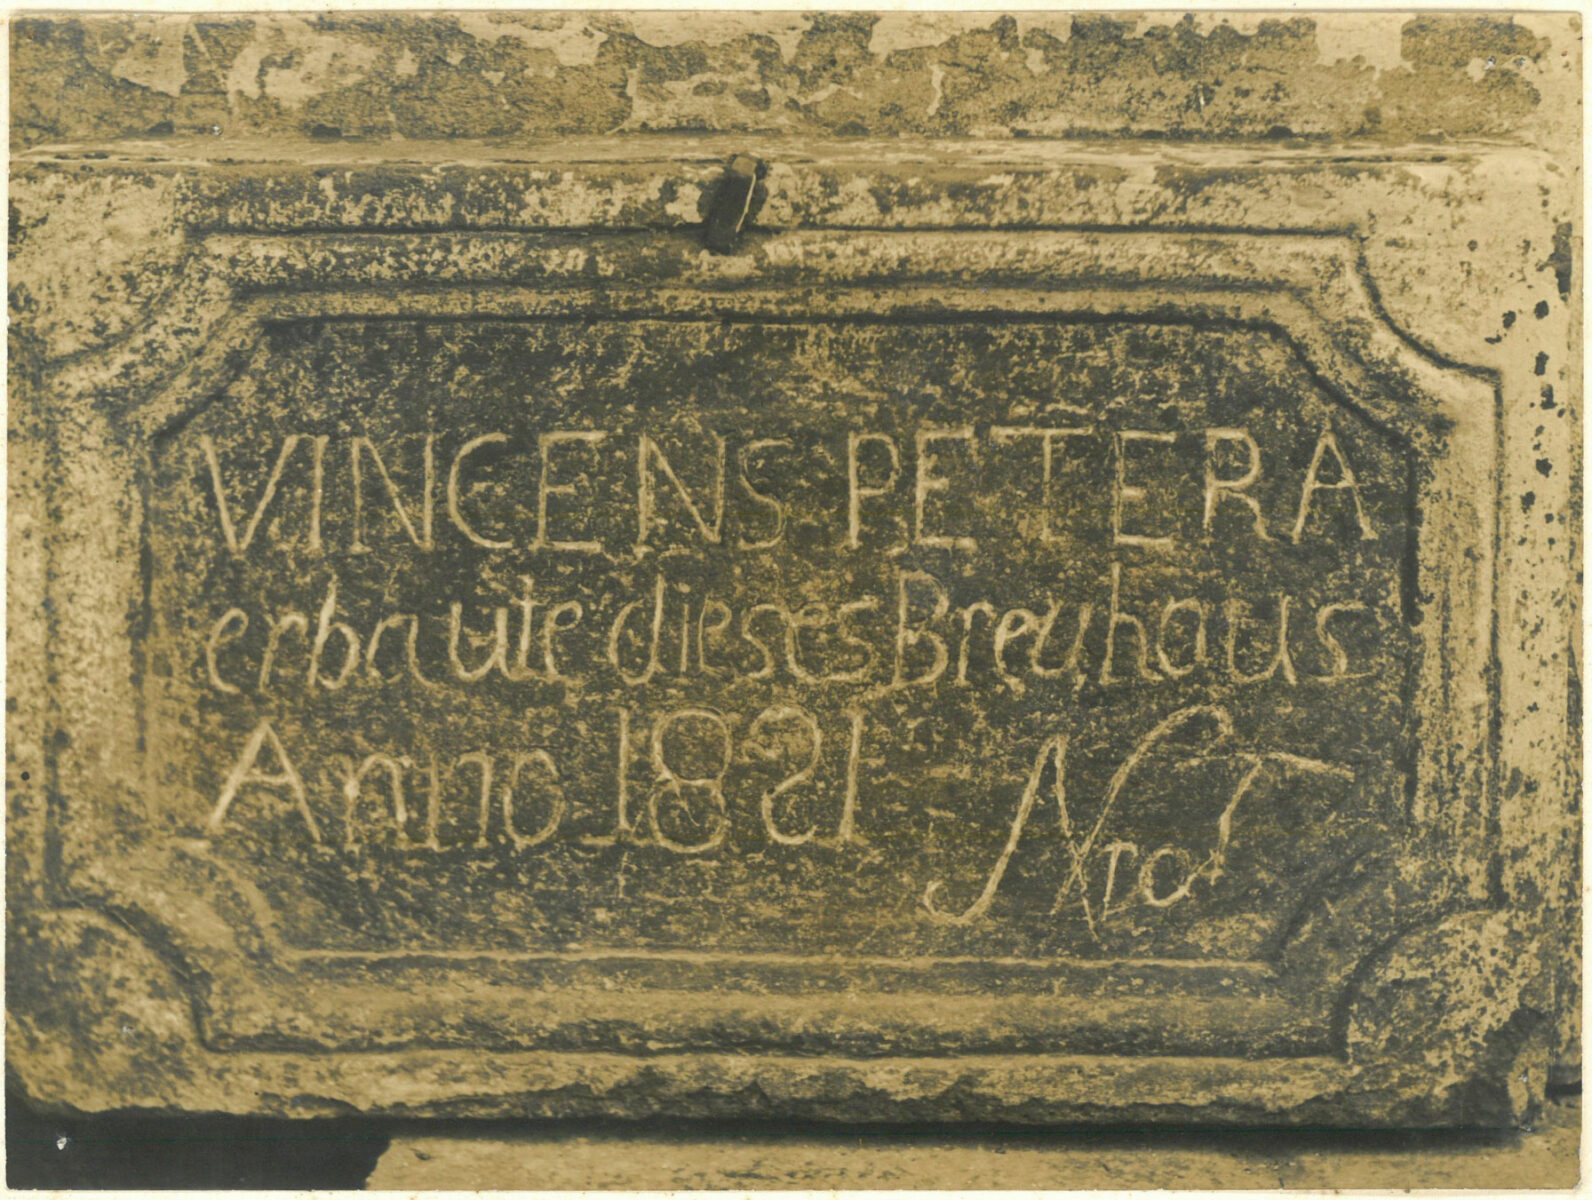 VINCENS PETERA
erbaute dieses Breuhaus
Anno 1821